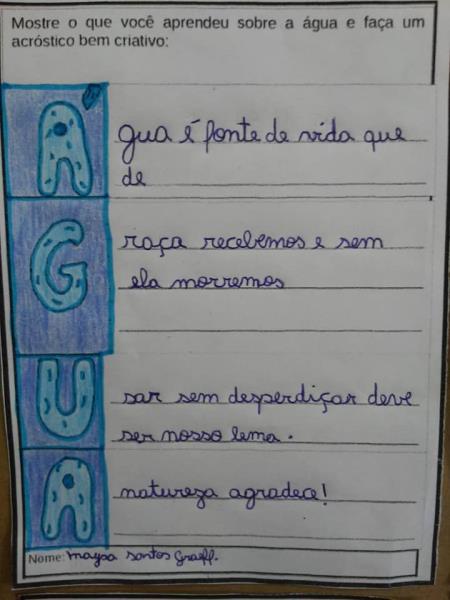 Mostre o que você aprendeu sobre a água e faça um
acróstico bem criativo:
Água é fonte de vida que
de
Graça recebemos e sem
ela morremos
Usar sem desperdiçar deve
ser nosso lema.
A natureza agradece!
Nome: Maysa Santos Graeff.